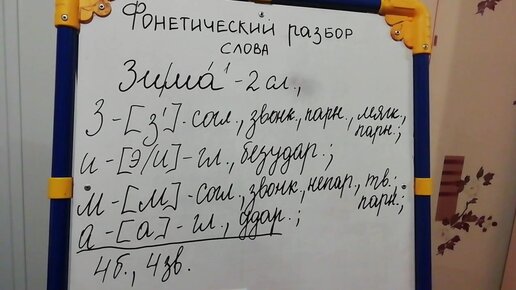 Фонетический разбор
слова
Зи/ма́¹ - 2 сл.,
З - [з'] - согл., звонк., парн., мягк.,
парн.;
и - [э/и] - гл., безудар.;
м - [м] - согл., звонк., непар., тв.
парн.;
а - [а] - гл., удар.;
4 б., 4 зв.